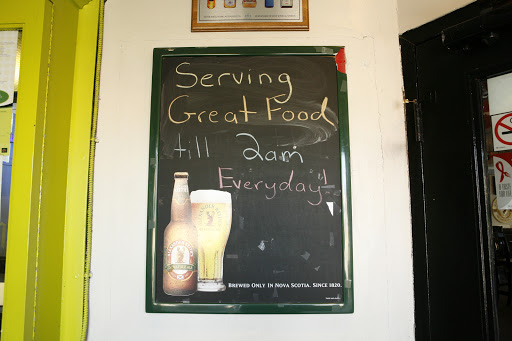 Serving
Great Food
till 2am
Everyday!
BREWED ONLY IN NOVA SCOTIA. SINCE 1820.